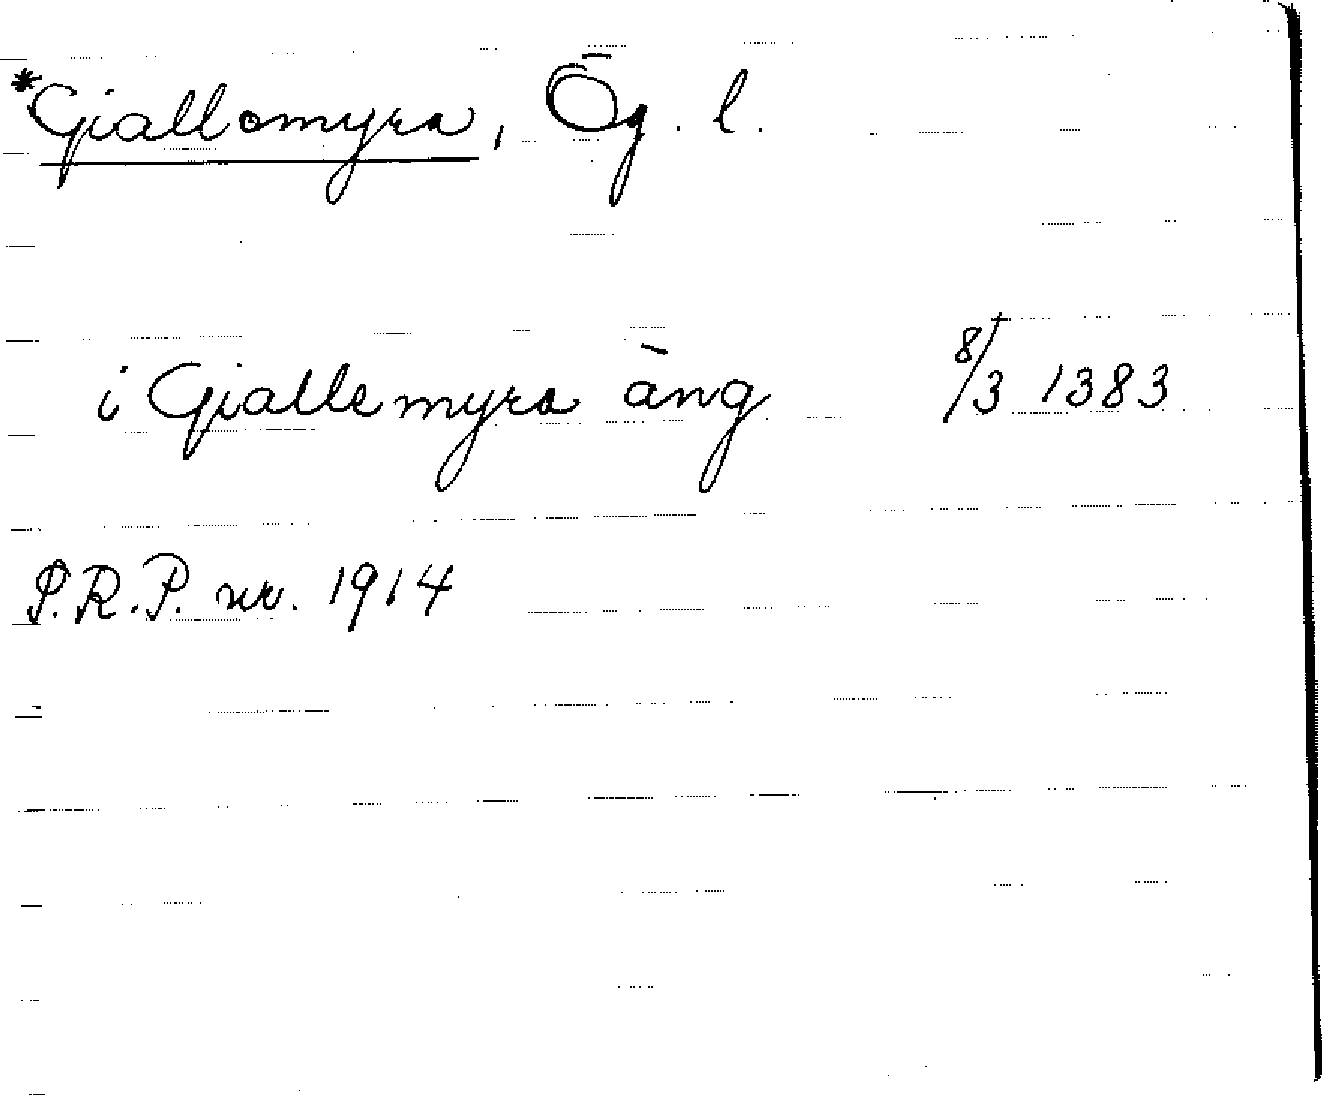 *Giallomyra, Ög. l.
i Giallemyra äng 8/3 1383
P.R.P. nr. 1914